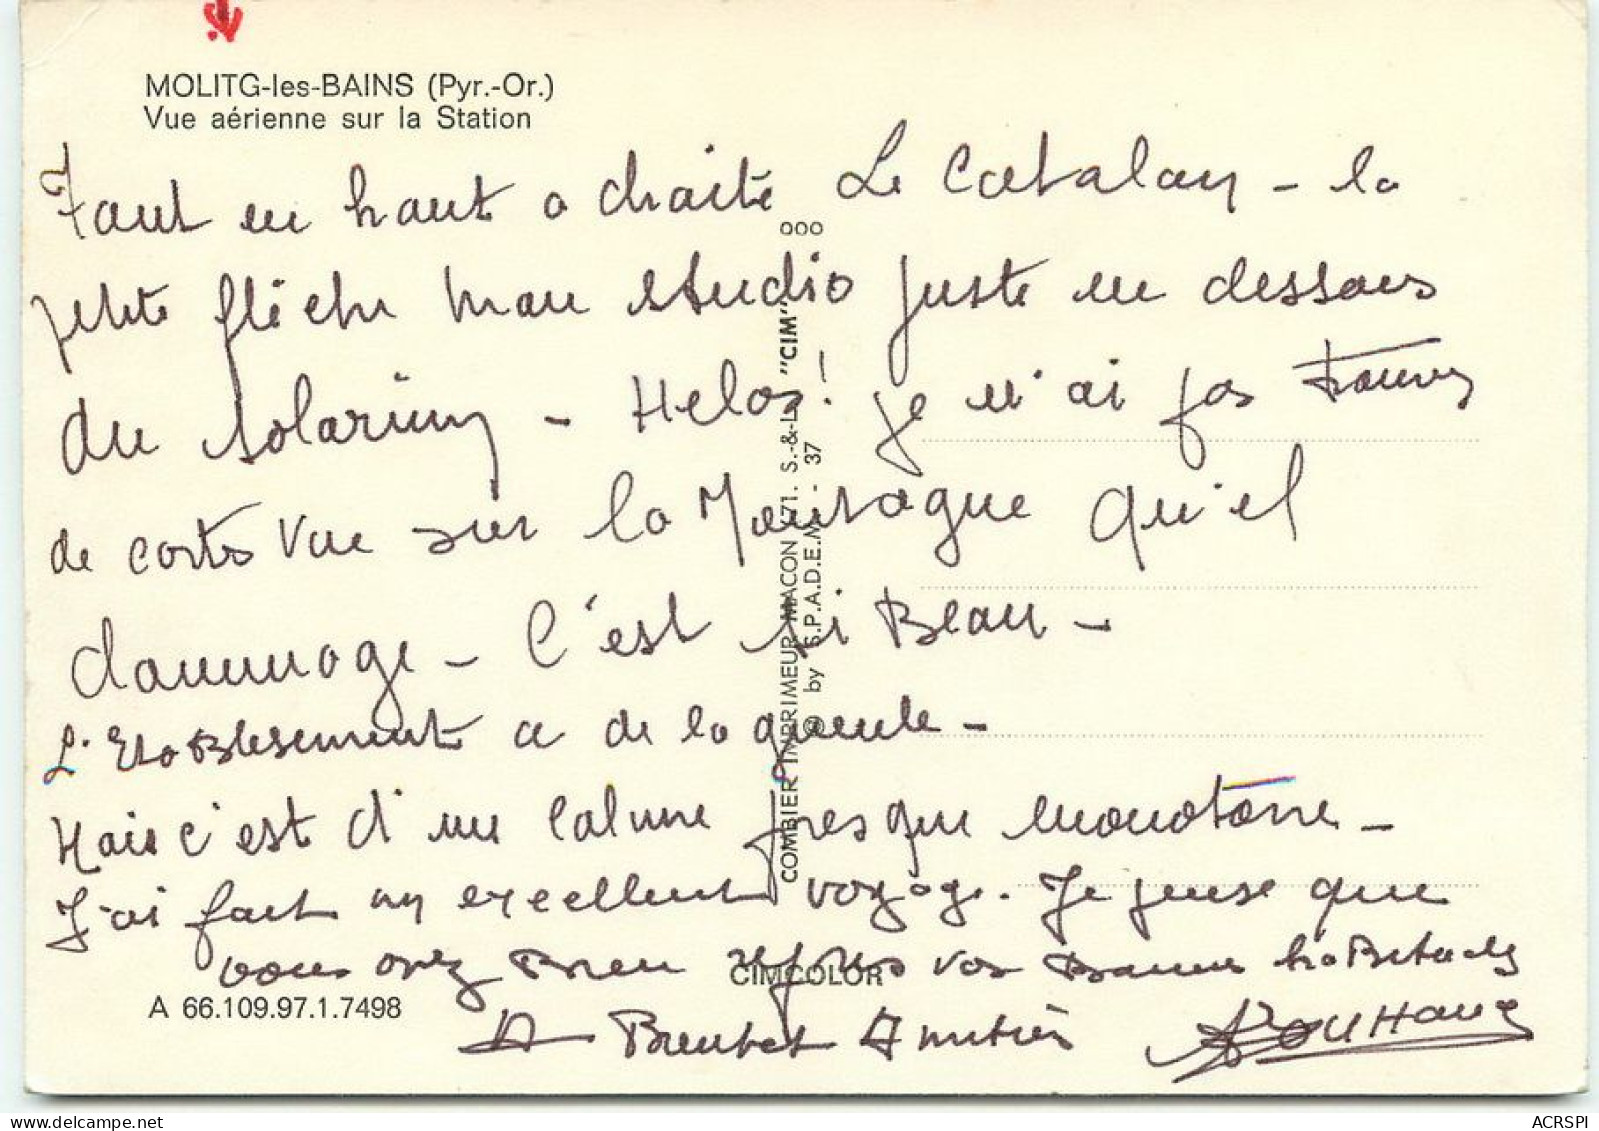 MOLITG-les-BAINS (Pyr.-Or.)
Vue aérienne sur la Station
Tout en haut a droite Le Catalan - la
petite flèche mon studio juste en dessous
du solarium - Helas! je n'ai pas trouvé
de cartes vue sur la Montagne Qu'el
dommage - C'est si Beau -
L'Etablissement a de la gueule -
Mais c'est d'un calme presque monotone -
J'ai fait un excellent voyage. Je pense que
vous avez Bien repris vos Bonnes habitudes
A Bientot Amitiés
A 66.109.97.1.7498
COMBIER IMPRIMEUR MACON S.-&-L. "CIM"
© by S.P.A.D.E.M. - 37
CIMCOLOR
ACRSPI